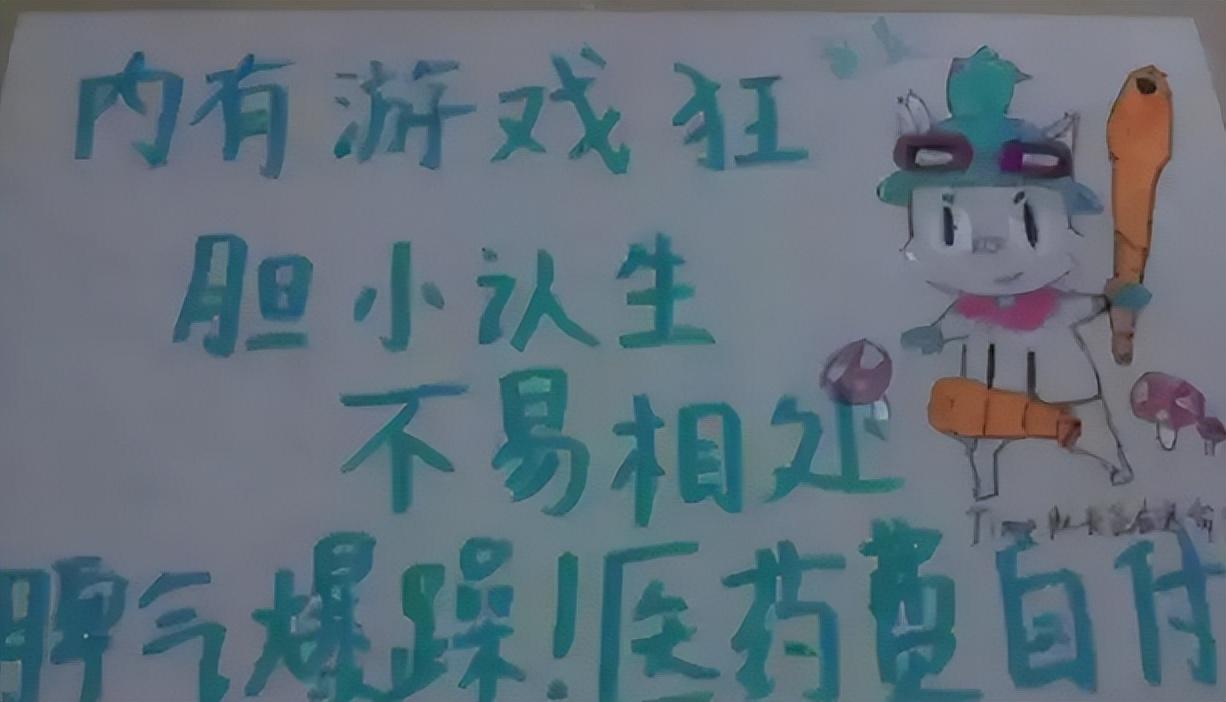 内有游戏狂
胆小认生
不易相处
脾气爆躁!医药费自付